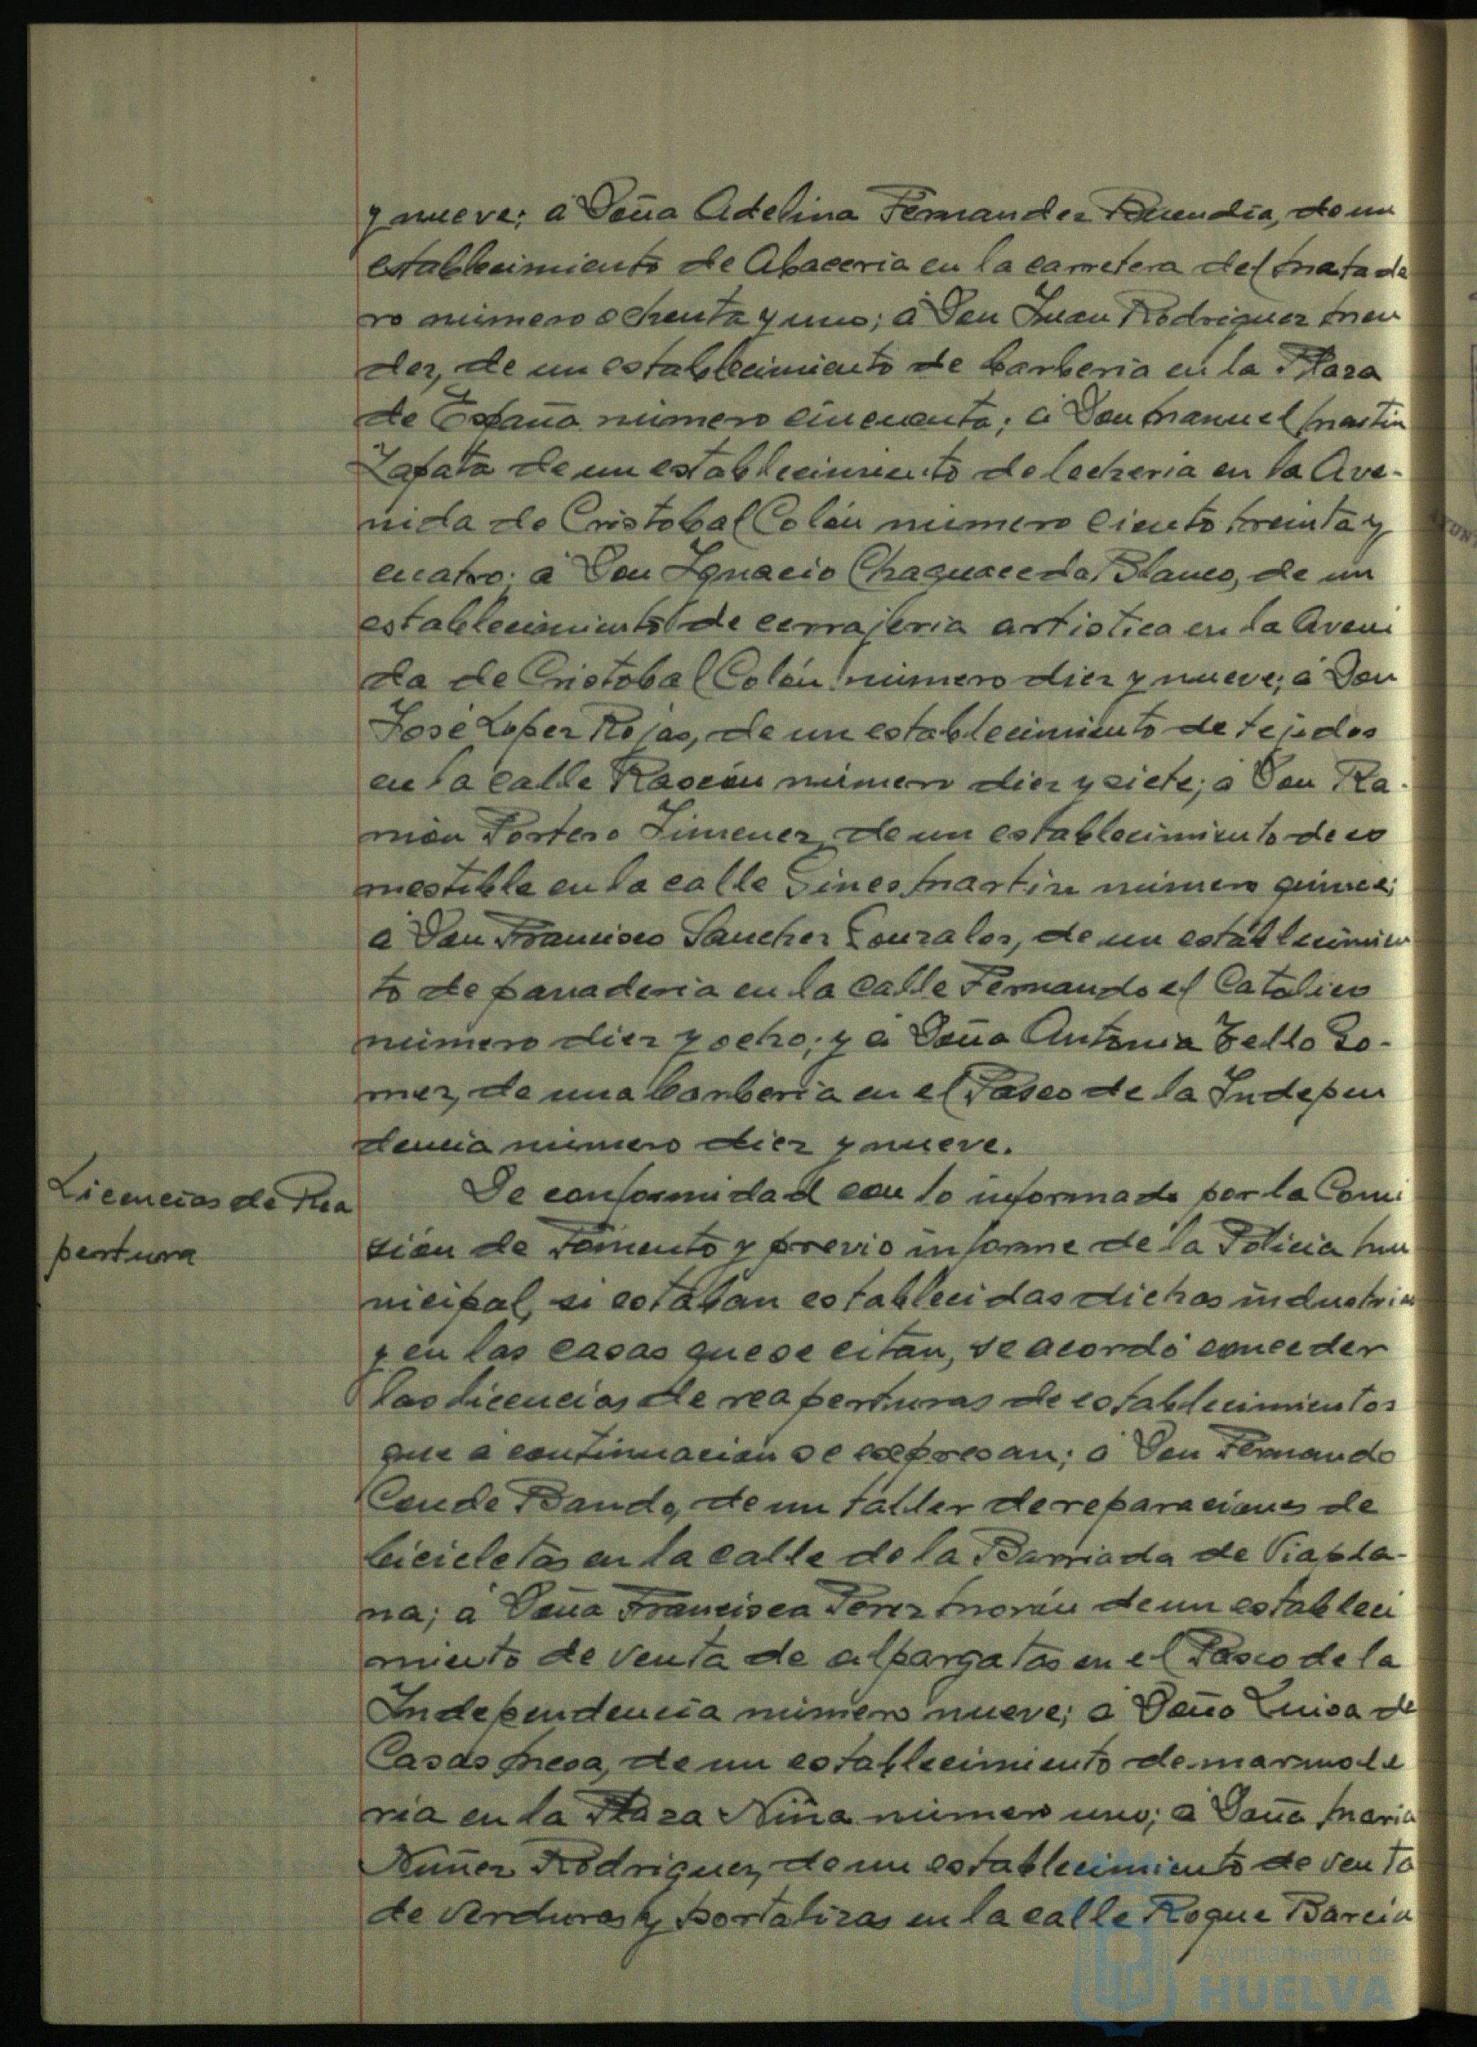 y nueve; á Doña Adelina Fernandez Buendia, de un
establecimiento de Abaceria en la carretera del Matade
ro número ochenta y uno; á Don Juan Rodriguez Men
dez, de un establecimiento de barberia en la Plaza
de España número cincuenta; á Don Manuel Martin
Zapata de un establecimiento de lecheria en la Ave-
nida de Cristobal Colón número ciento treinta y
cuatro; á Don Ignacio Chaguaceda Blanco, de un
establecimiento de cerrajeria artistica en la Aveni
da de Cristobal Colón número diez y nueve; á Don
José Lopez Rojas, de un establecimiento de tejidos
en la calle Rascón número diez y siete; á Don Ra-
món Portero Jimenez, de un establecimiento de co
mestible en la calle Gines Martin número quince;
á Don Francisco Sanchez Gonzalez, de un establecimien
to de panaderia en la calle Fernando el Catolico
número diez y ocho; y á Doña Antonia Tello Go-
mez, de una barberia en el Paseo de la Indepen
dencia número diez y nueve.
Licencias de Rea
pertura
De conformidad con lo informado por la Comi
sión de Fomento y previo informe de la Policia Mu
nicipal, si estaban establecidas dichas industrias
y en las casas que se citan, se acordó conceder
las licencias de reaperturas de establecimientos
que á continuación se expresan; á Don Fernando
Conde Bando, de un taller de reparaciones de
bicicletas en la calle de la Barriada de Viapla-
na; á Doña Francisca Perez Morón de un estableci
miento de venta de alpargatas en el Paseo de la
Independencia número nueve; á Doña Luisa de
Casas Mesa, de un establecimiento de marmole
ria en la Plaza Niña número uno; á Doña Maria
Nuñez Rodriguez, de un establecimiento de venta
de verduras y hortalizas en la calle Roque Barcia
Ayuntamiento de
HUELVA